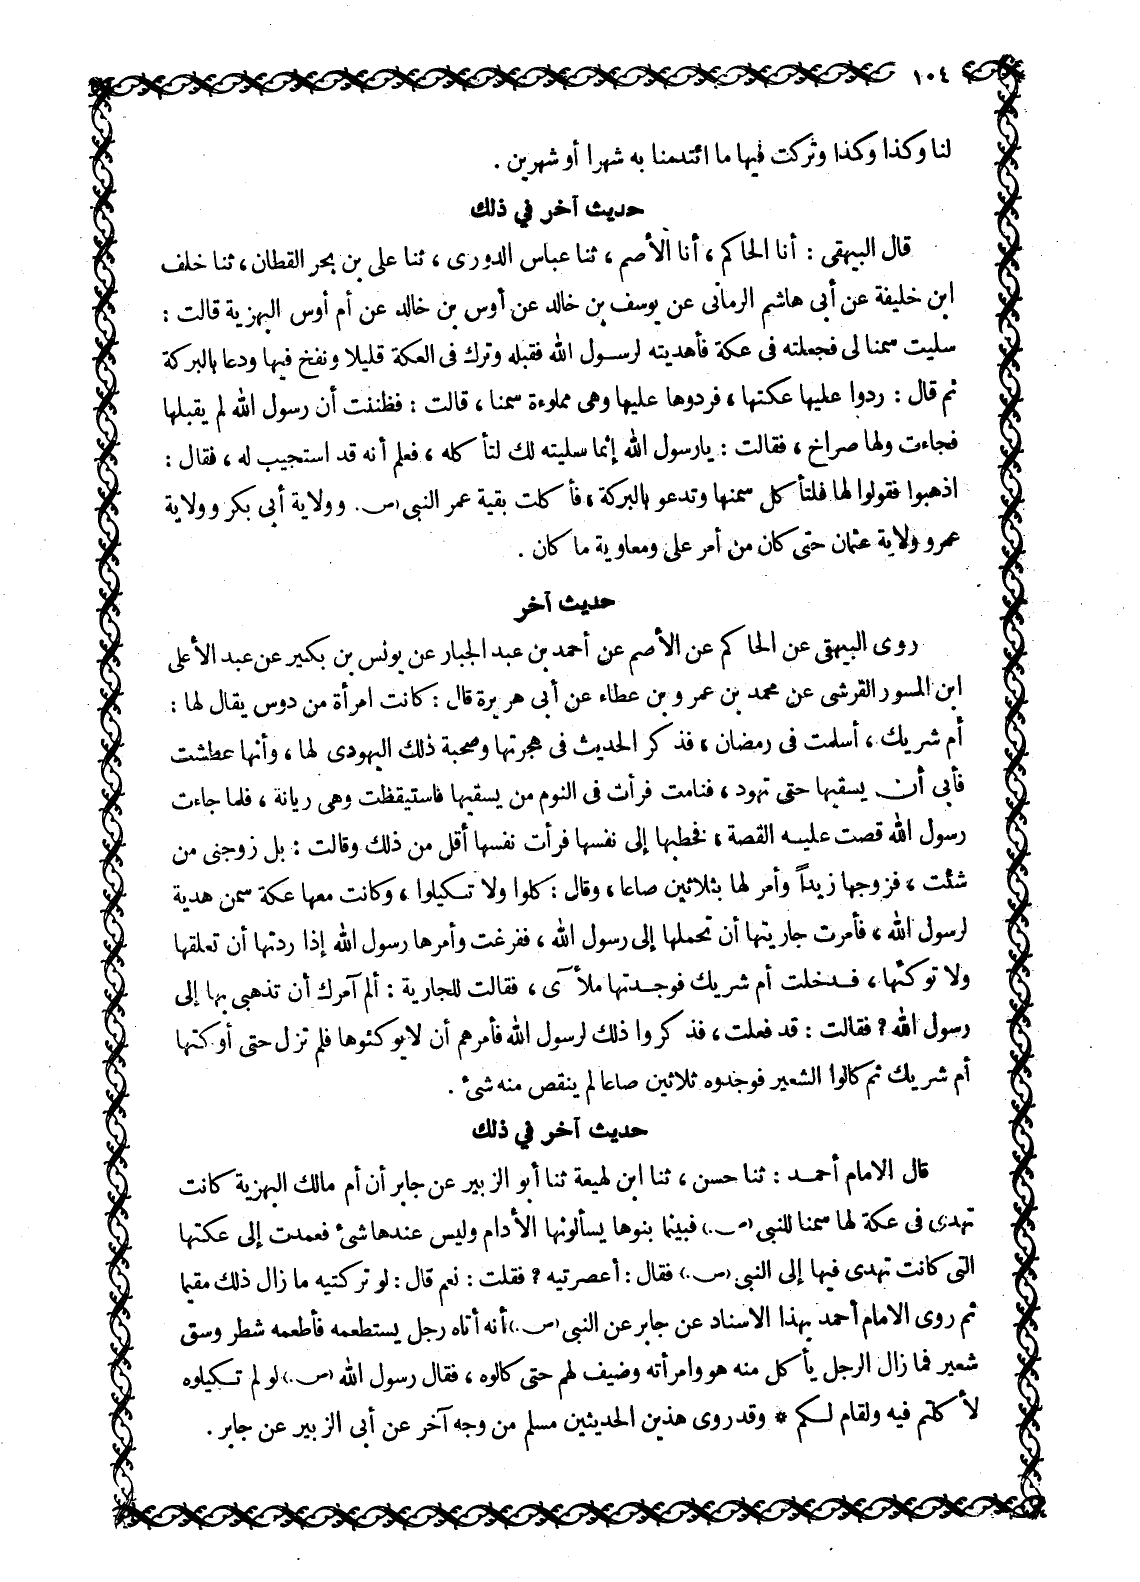 ١٠٤
لنا وكذا وكذا وتركت فيها ما ائتدمنا به شهرا أو شهرين .
حديث آخر في ذلك
قال البيهقى : أنا الحاكم ، أنا الأصم ، ثنا عباس الدورى ، ثنا على بن بحر القطان ، ثنا خلف
ابن خليفة عن أبى هاشم الرمانى عن يوسف بن خالد عن أوس بن خالد عن أم أوس البهزية قالت :
سليت سمنا لى فجعلته فى عكة فأهديته لرسول الله فقبله وترك فى العكة قليلا ونفخ فيها ودعا بالبركة
ثم قال : ردوا عليها عكتها ، فردوها عليها وهى مملوءة سمنا ، قالت : فظننت أن رسول الله لم يقبلها
فجاءت ولها صراخ ، فقالت : يارسول الله إنما سليته لك لتأكله ، فعلم أنه قد استجيب له ، فقال :
اذهبوا فقولوا لها فلتأكل سمنها وتدعو بالبركة ، فأكلت بقية عمر النبى (س.) وولاية أبى بكر وولاية
عمرو ولاية عثمان حتى كان من أمر على ومعاوية ما كان .
حديث آخر
روى البيهقى عن الحاكم عن الأصم عن أحمد بن عبد الجبار عن يونس بن بكير عن عبد الأعلى
ابن المسور القرشى عن محمد بن عمرو بن عطاء عن أبى هريرة قال : كانت امرأة من دوس يقال لها :
أم شريك ، أسلمت فى رمضان ، فذكر الحديث فى هجرتها وصحبة ذلك اليهودى لها ، وأنها عطشت
فأبى أن يسقيها حتى تهود ، فنامت فرأت فى النوم من يسقيها فاستيقظت وهى ريانة ، فلما جاءت
رسول الله قصت عليه القصة ، فخطبها إلى نفسها فرأت نفسها أقل من ذلك وقالت : بل زوجنى من
شئت ، فزوجها زيداً وأمر لها بثلاثين صاعا ، وقال : كلوا ولا تكيلوا ، وكانت معها عكة سمن هدية
لرسول الله ، فأمرت جاريتها أن تحملها إلى رسول الله ، ففرغت وأمرها رسول الله إذا ردتها أن تعلقها
ولا توكئها ، فدخلت أم شريك فوجدتها ملأ آى ، فقالت للجارية : ألم آمرك أن تذهبى بها إلى
رسول الله ? فقالت : قد فعلت ، فذكروا ذلك لرسول الله فأمرهم أن لايوكئوها فلم تزل حتى أوكتها
أم شريك ثم كالوا الشعير فوجدوه ثلاثين صاعا لم ينقص منه شئ .
حديث آخر في ذلك
قال الامام أحمد : ثنا حسن ، ثنا ابن لهيعة ثنا أبو الزبير عن جابر أن أم مالك البهزية كانت
تهدى فى عكة لها سمنا للنبى (س.) فبينما بنوها يسألونها الأدام وليس عندها شئ فعمدت إلى عكتها
التى كانت تهدى فيها إلى النبى (س.) فقال : أعصرتيه ? فقلت : نعم قال : لو تركتيه ما زال ذلك مقيما
ثم روى الامام أحمد بهذا الاسناد عن جابر عن النبى (س.) أنه أتاه رجل يستطعمه فأطعمه شطر وسق
شعير فما زال الرجل يأكل منه هو وامرأته وضيف لهم حتى كالوه ، فقال رسول الله (س.) لو لم تكيلوه
لأكلتم فيه ولقام لكم * وقد روى هذين الحديثين مسلم من وجه آخر عن أبى الزبير عن جابر .